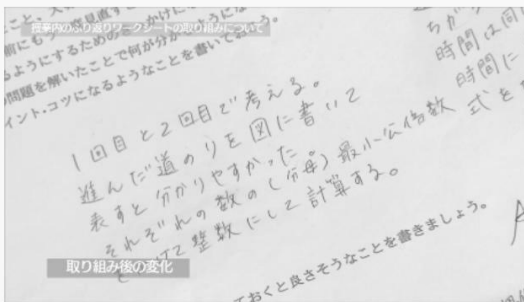 授業内のふり返りワークシートの取り組みについて
るようにするための
問題を解いたことで何が分か
イント・コツになるようなことを書いておこう。
1回目と2回目で考える。
進んだ道のりを図に書いて
表すと分かりやすかった。
それぞれの数の(分母)最小公倍数
けて整数にして計算する。
ちが
時間は同
時間に
式を
ておくと良さそうなことを書きましょう。
取り組み後の変化